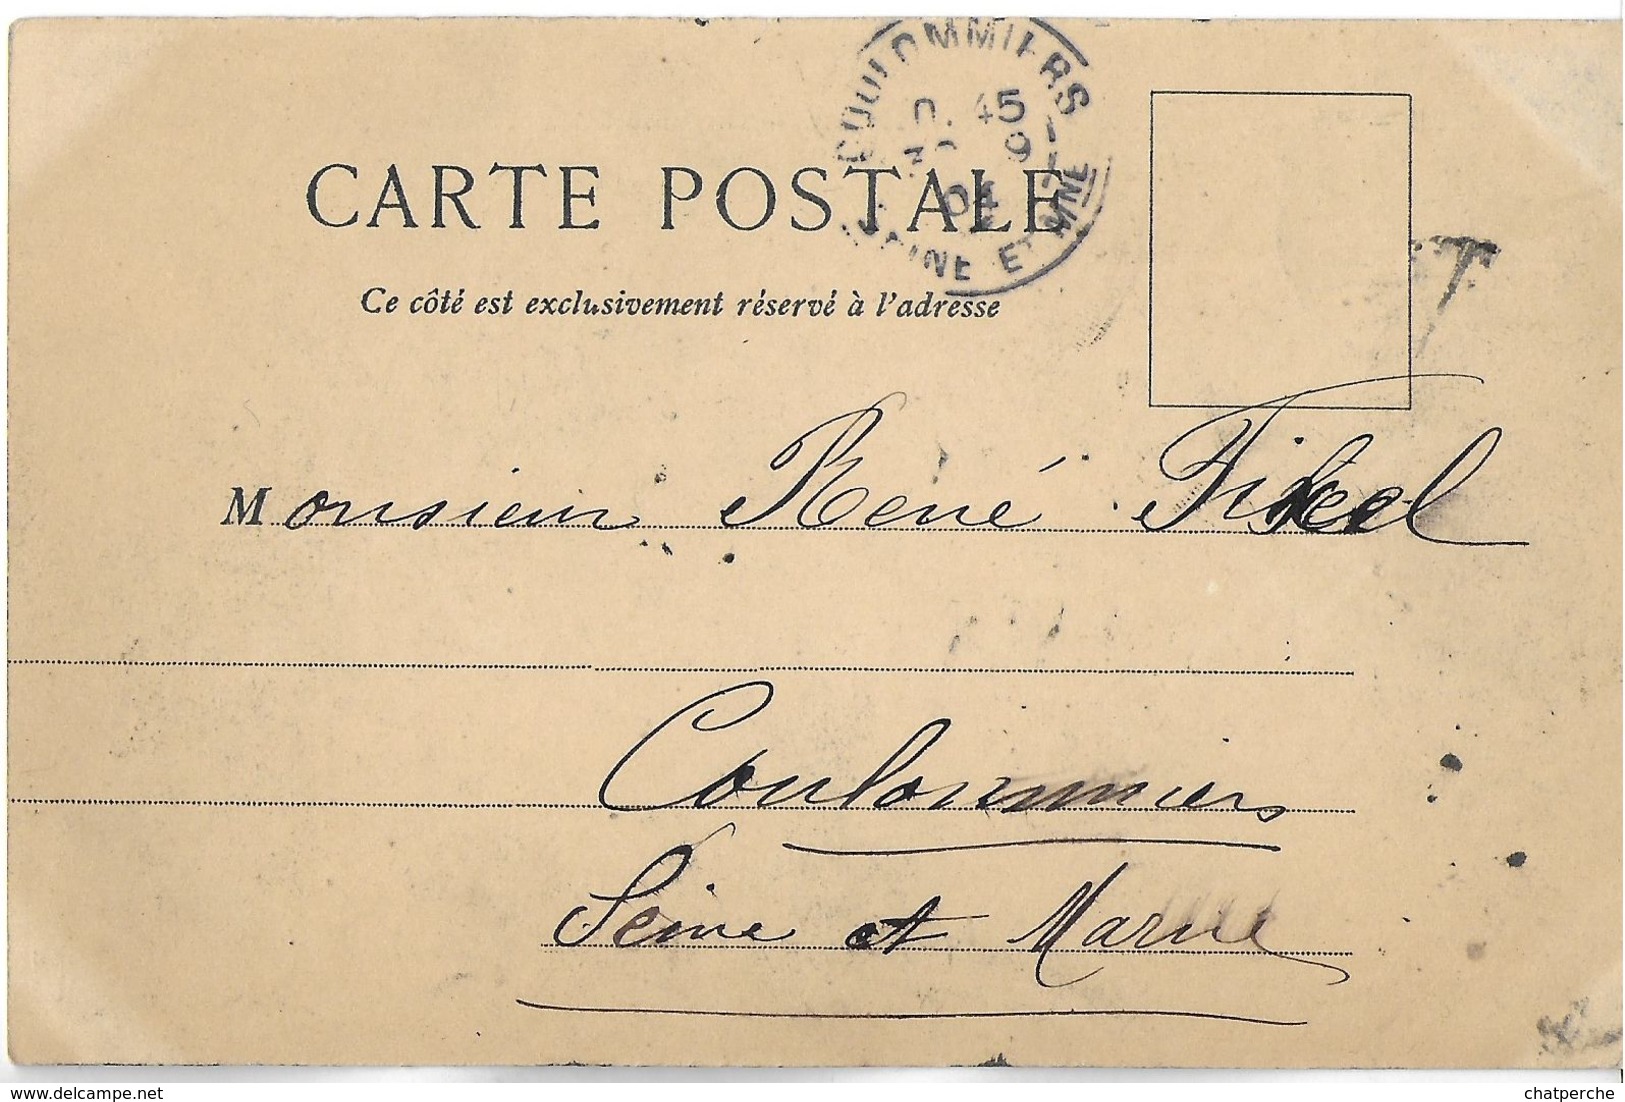 COULOMMIERS
45
9
04
SEINE ET MNE
CARTE POSTALE
Ce côté est exclusivement réservé à l'adresse
T
Monsieur René
Coulommiers
Seine et Marne
delcampe.net
chatperche